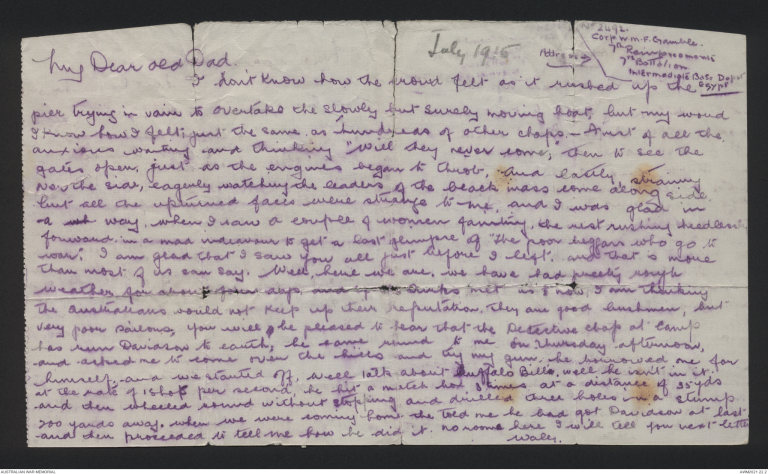 No 2492.
Corp W.M.F. Gamble.
7th Reinforcements
7th Battalion
Intermediate Base Depot
Egypt
Address
July 1915
My Dear old Dad.
I don't know how the crowd felt as it rushed up the
pier trying in vain to overtake the slowly but surely moving boat, but my word
I know how I felt, just the same as hundreds of other chaps. First of all the
anxious waiting and thinking "Will they never come," then to see the
gates open, just as the engines began to throb, and lastly straining
over the side, eagerly watching the leaders of the black mass come along side,
but all the upturned faces were strange to me, and I was glad in
a way, when I saw a couple of women fainting, the rest rushing heedlessly
forward in a mad endeavour to get a last glimpse of "the poor beggars who go to
war." I am glad that I saw you all just before I left, and that is more
than most of us can say. Well, here we are, we have had pretty rough
weather for about four days, and if the Turks met us now, I am thinking
the Australians would not keep up their reputation, they are good bushmen, but
very poor sailors. You will be pleased to hear that the Detective chap at camp
has run Davidson to earth, he came round to me on Thursday afternoon,
and asked me to come over the hills and try my gun, he borrowed one for
himself, and we started off, well talk about Buffalo Bill, well he isn't in it.
at the rate of 1 shot per second, he hit a match box 3 times at a distance of 25 yds
and then wheeled round without stopping and drilled three holes in a stump
200 yards away. when we were coming home he told me he had got Davidson at last
and then proceeded to tell me how he did it. no room here I will tell you next letter
Wally.
AUSTRALIAN WAR MEMORIAL